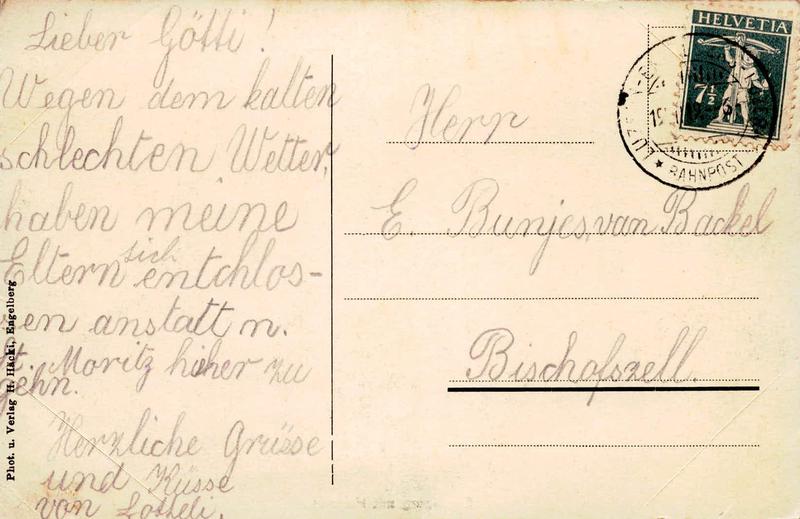 Lieber Götti!
Wegen dem kalten
schlechten Wetter,
haben meine
Eltern sich entchlos-
sen anstatt n.
St. Moritz hieher zu
gehn.
Herzliche Grüsse
und Küsse
von Lotteli.
Phot. u. Verlag H. Häcki, Engelberg
HELVETIA
7½
BAHNPOST
Herr
E. Bunjes, van Backel
Bischofszell.